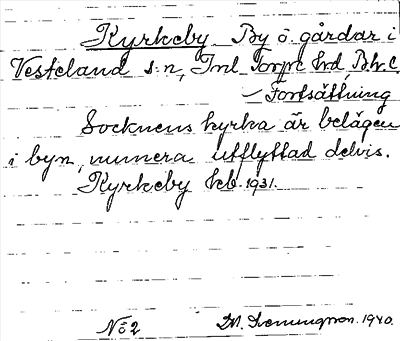 Kyrkeby By o. gårdar i
Vesteland s:n, Inl. Torpe hrd, B.l.c.
Fortsättning
Socknens kyrka är belägen
i byn, numera utflyttad delvis.
Kyrkeby kb. 1931.
No 2 1940.